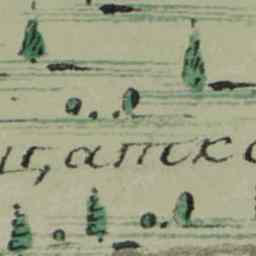 цапско